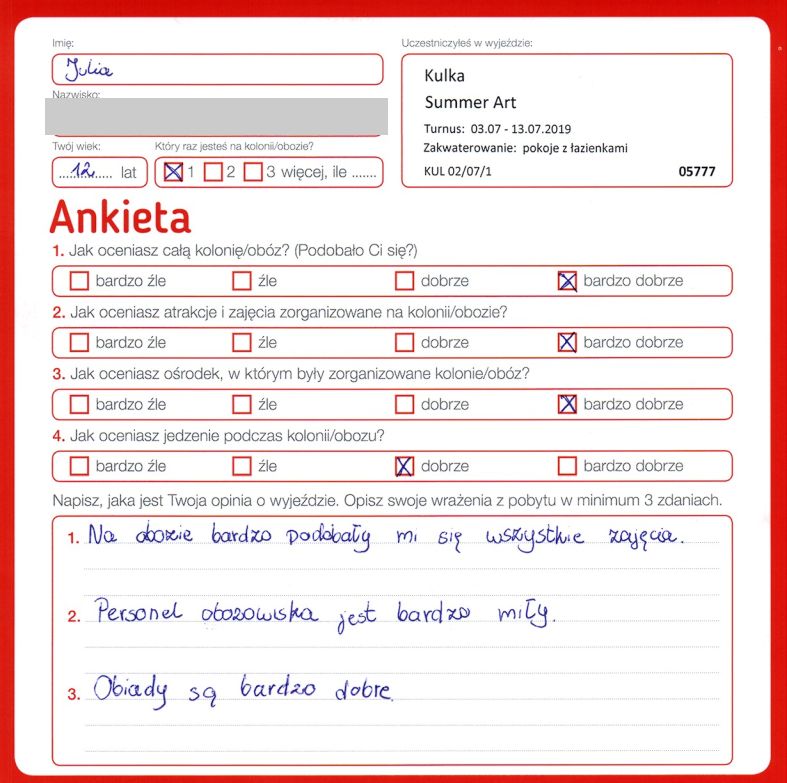 Imię:
Julia
Nazwisko:
Twój wiek:
Który raz jesteś na kolonii/obozie?
12 lat
1 2 3 więcej, ile .......
Uczestniczyłeś w wyjeździe:
Kulka
Summer Art
Turnus: 03.07 - 13.07.2019
Zakwaterowanie: pokoje z łazienkami
KUL 02/07/1 05777
Ankieta
1. Jak oceniasz całą kolonię/obóz? (Podobało Ci się?)
bardzo źle źle dobrze bardzo dobrze
2. Jak oceniasz atrakcje i zajęcia zorganizowane na kolonii/obozie?
bardzo źle źle dobrze bardzo dobrze
3. Jak oceniasz ośrodek, w którym były zorganizowane kolonie/obóz?
bardzo źle źle dobrze bardzo dobrze
4. Jak oceniasz jedzenie podczas kolonii/obozu?
bardzo źle źle dobrze bardzo dobrze
Napisz, jaka jest Twoja opinia o wyjeździe. Opisz swoje wrażenia z pobytu w minimum 3 zdaniach.
1. Na obozie bardzo podobały mi się wszystkie zajęcia.
2. Personel obozowiska jest bardzo miły.
3. Obiady są bardzo dobre.